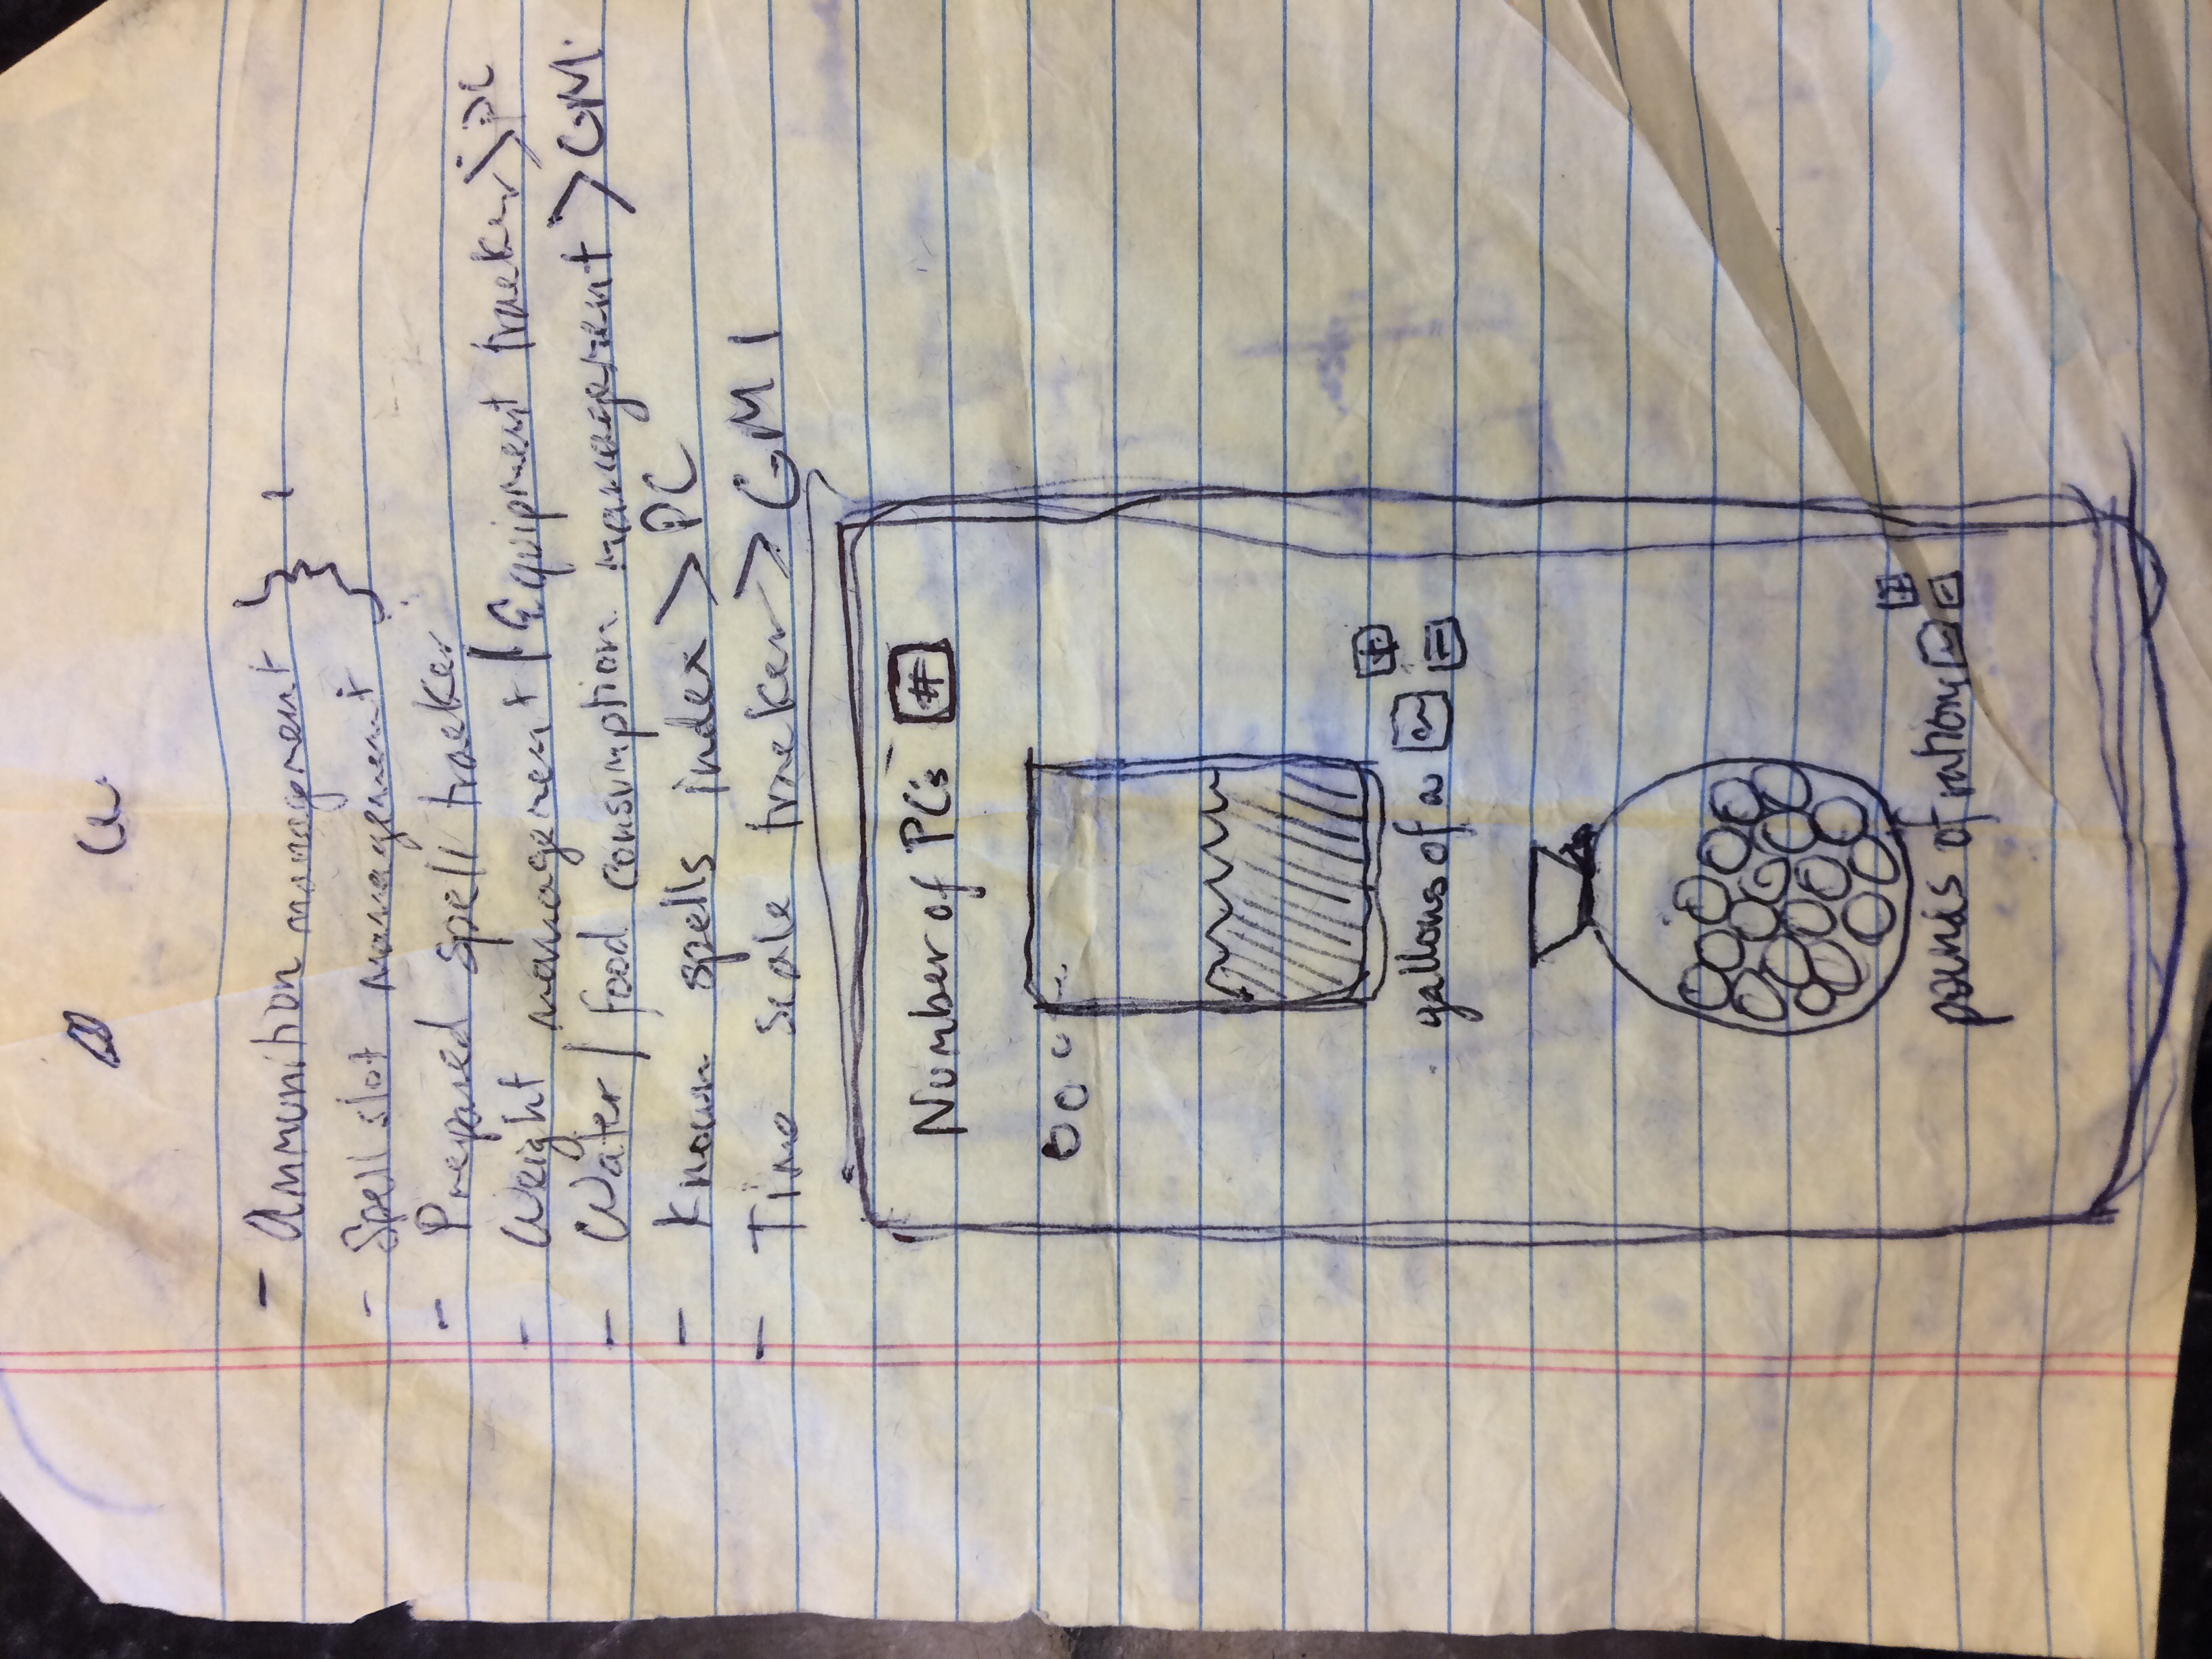 - Ammunition managment } 1
- Spell slot management
- Prepared spell tracker
- Weight management / Equipment tracker > PC
- Water / food consumption management > GM
- Known spells index > PC
- Time scale tracker > GM 1
Number of PC's #
gallons of
+
-
pounds of rations
+
-